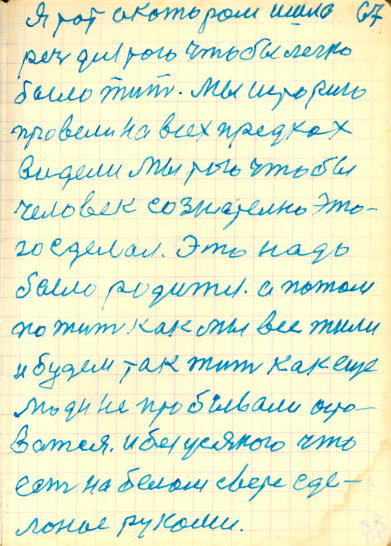 Я тот о котором шла 67
реч для того чтобы легко
было жит. Мы историю
провели на всех предках
видели мы того чтобы
человек сознателно это-
го сделал. Это надо
было родится. а потом
пожит как мы все жили
и будем так жит как еще
люди не пробывали оста-
ватся. и без усякого что
ест на белом свете сде-
лоное руками.